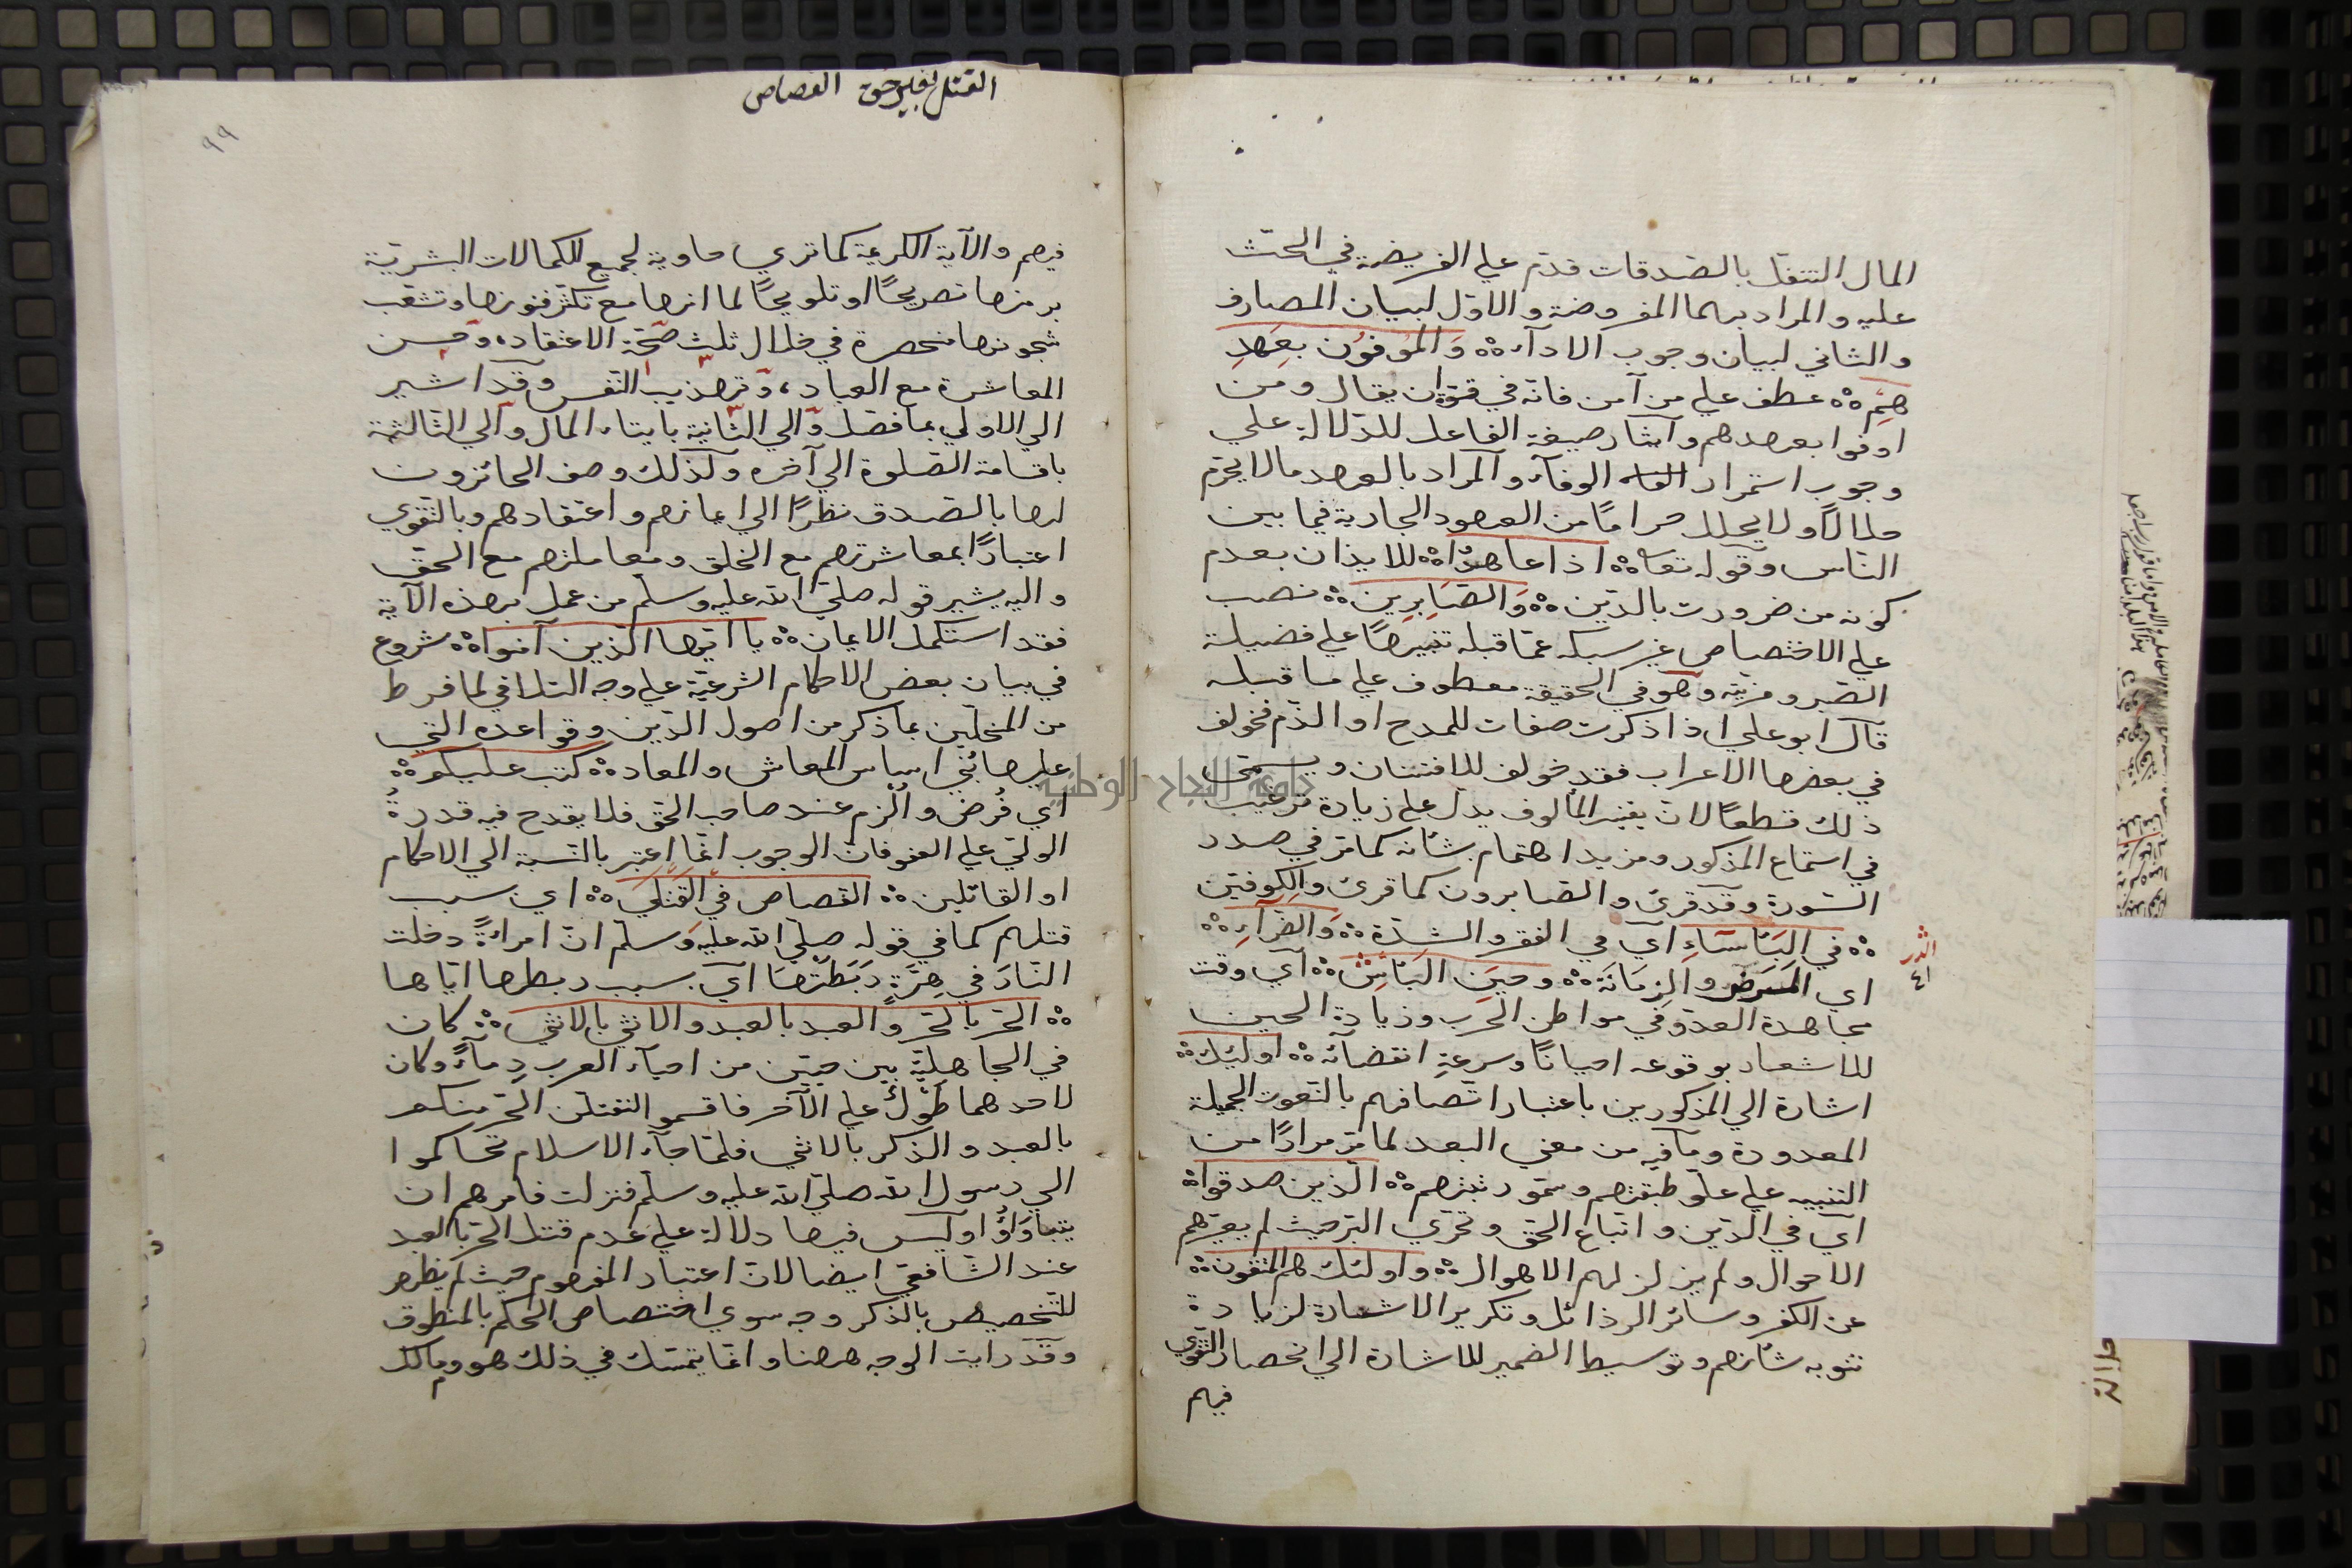 المال التنفل بالصدقات قدّم على الفريضة في الحث
عليه والمراد بهما المفروضة والاوّل لبيان المصارف
والثاني لبيان وجوب الادآء ۞ وَالمُوفُون بِعَهدِ
هِمْ ۞ عطف على من آمن فانه في قوّة ان يقال ومن
اوفوا بعهدهم وايثار صيغة الفاعل للدّلالة على
وجوب استمرار الوفآء والمراد بالعهد ما لا يحرّم
حلالاً ولا يحلل حرامًا من العهود الجارية فيما بين
النّاس وقوله تعا ۞ اذا عاهدُوا ۞ للايذان بعدم
كونه من ضروريات الدّين ۞ وَالصَّابِرِين ۞ نصب
على الاختصاص غير سبكه عمّا قبله تنبيهًا على فضيلة
الصّبر ومزيّته وهو في الحقيقة معطوف على ما قبله
قال ابو علي اذا ذكرت صفات للمدح او الذّم فخولف
في بعضها الاعراب فقد خولف للافتنان ويسمّى
ذلك قطعًا لانّ تغيير المألوف يدلّ على زيادة ترغيب
في استماع المذكور ومزيد اهتمام بشأنه كما مرّ في صدد
السّورة وقد قرئ والصّابرون كما قرئ والموفين
۞ في البَأسَآءِ اي في الفقر والشدّة ۞ وَالضَّرآءِ ۞
اي المَرَض والزمَانَة ۞ وحِينَ البَأسِ ۞ اي وقت
مجاهدة العدوّ في مواطن الحرب وزيادة الحين
للاشعار بوقوعه احيانًا وسرعةِ انقضآئه ۞ اولئِكَ ۞
اشارة الى المذكورين باعتبار اتّصافهم بالنّعوت الجميلة
المعدودة وما فيه من معنى البعد لما مرّ مرارًا من
التنبيه على علوّ طبقتهم وسموّ رتبتهم ۞ الذين صدقوا ۞
اي في الدّين واتباع الحقّ وتحرّي البرّ حيث لم يغيّرهم
الاحوال ولم يزلزلهم الاهوال ۞ واولئك هم المتقون ۞
عن الكفر وسائر الرذائل وتكرير الاشارة لزيادة
تنويه شأنهم وتوسيط الضمير للاشارة الى انحصار التّقوى
فيهم
الثمر
٤١
القتل بغير حق القصاص
٩٩
فيهم والآية الكريمة كما ترى حاوية لجميع الكمالات البشريّة
برمتها تصريحًا او تلويحًا لما انها مع تكثّر فنونها وتشعّب
شجونها منحصرة في خلال ثلث صحّة الاعتقاد، وحسن
المعاشرة مع العباد، وتهذيب النّفس وقد اشير
الى الاولى بما فصّل والى الثّانية بايتاء المال والى الثالثة
باقامة الصّلوة الى آخره ولذلك وصف الحائزون
لها بالصّدق نظرًا الى ايمانهم واعتقادهم وبالتّقوى
اعتبارًا بمعاشرتهم مع الخلق ومعاملتهم مع الحقّ
واليه يشير قوله صلى الله عليه وسلّم من عمل بهذه الآية
فقد استكمل الايمان ۞ يا ايّها الذين آمنوا ۞ شروع
في بيان بعض الاحكام الشرعيّة على وجه التلافي لما فرط
من المخلّين بما ذكر من اصول الدّين وقواعده التي
عليها بُني اساس المعاش والمعاد ۞ كُتب عليكم ۞
اي فُرض وألزم عند صاحب الحقّ فلا يقدح فيه قدرةُ
الوليّ على العفو فانّ الوجوب انّما اعتبر بالنّسبة الى الاحكام
او القاتلين ۞ القصاص في القَتلى ۞ اي بسبب
قتلهم كما في قوله صلّى الله عليه وسلّم انّ امرأةً دخلت
النّارَ في هِرَّةٍ رَبَطَتْها اي بسبب ربطها ايّاها
۞ الحرّ بالحرّ والعبد بالعبد والانثى بالانثى ۞ كان
في الجاهليّة بين حيّين من احيآء العرب دِمآءٌ وكان
لاحدهما طَوْلٌ على الآخر فاقسموا لنقتلنّ الحرّ منكم
بالعبد والذكر بالانثى فلمّا جآء الاسلام تحاكموا
الى رسول الله صلّى الله عليه وسلّم فنزلت فامرهم ان
يتباوَؤُا وليس فيها دلالة على عدم قتل الحرّ بالعبد
عند الشّافعيّ ايضا لانّ اعتبار المفهوم حيث لم يظهر
للتّخصيص بالذّكر وجه سوى اختصاص الحكم بالمنطوق
وقد رايت الوجه ههنا وانّما يتمسّك في ذلك هو ومالك
جامعة النجاح الوطنية